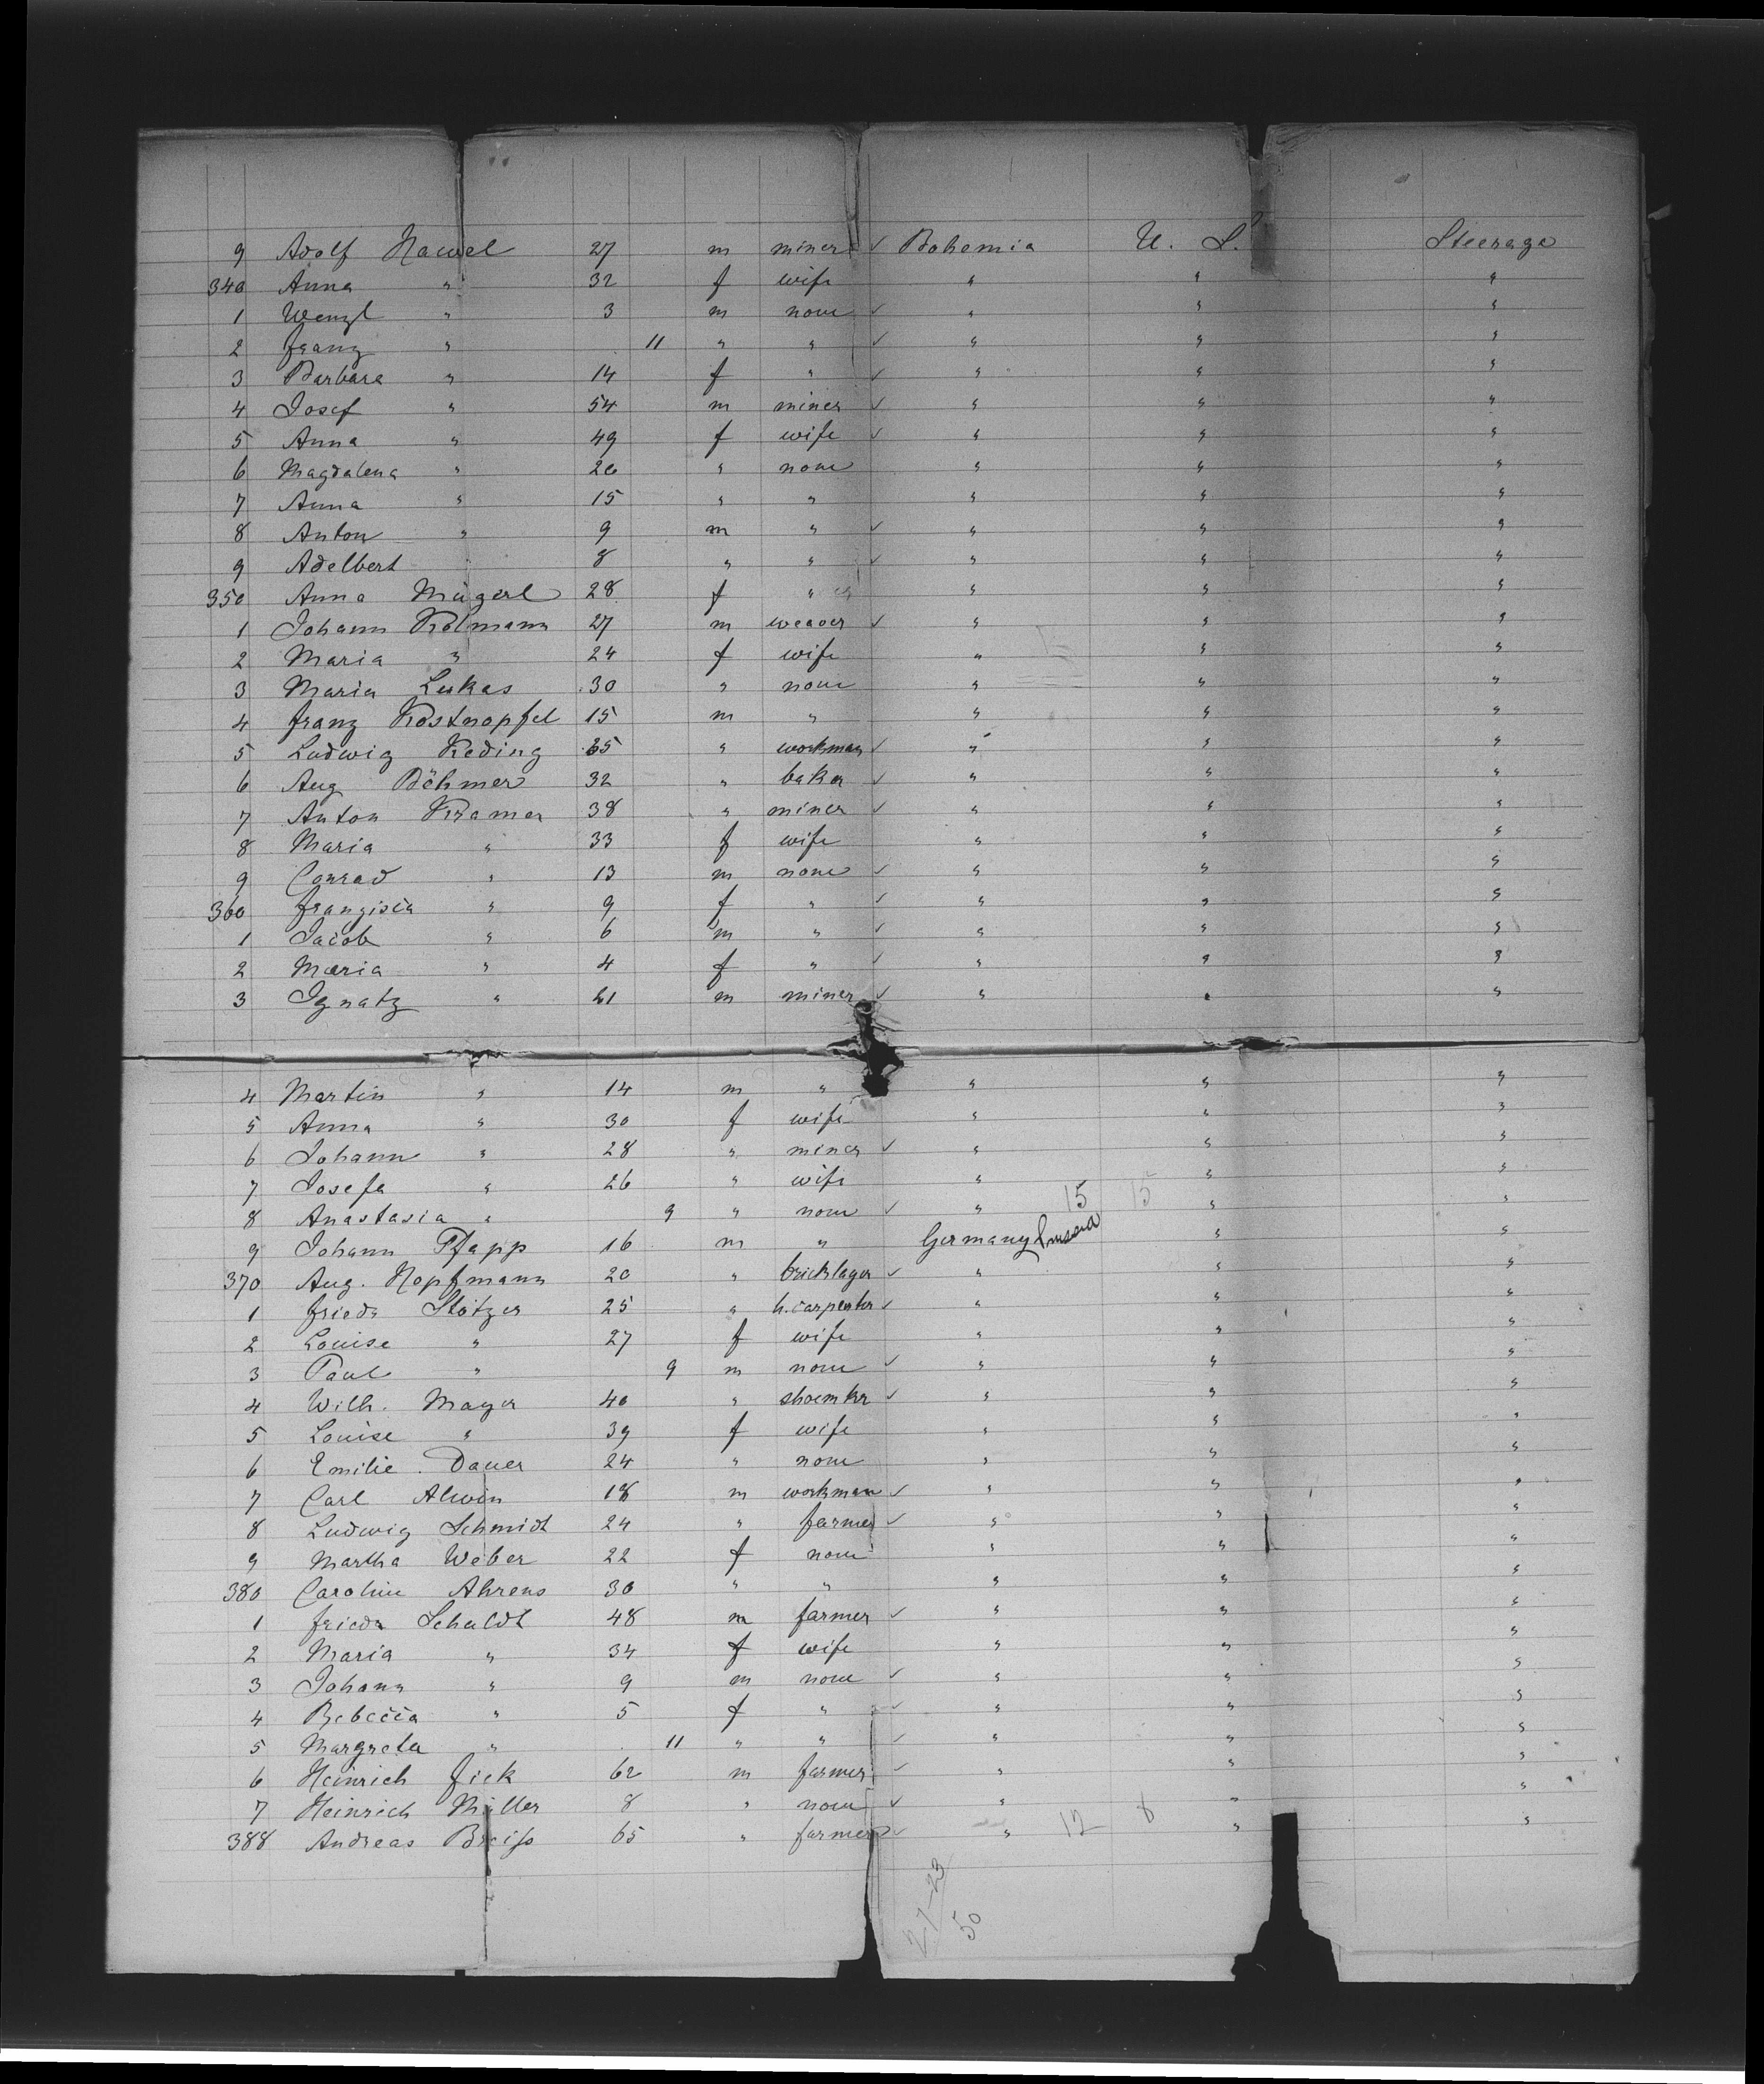 9 Adolf Hawel 27 m miner ✓ Bohemia U. S. Steerage
340 Anna " 32 f wife " " "
1 Wenzl " 3 m none ✓ " " "
2 Franz " 11 " " ✓ " " "
3 Barbara " 14 f " ✓ " " "
4 Josef " 54 m miner ✓ " " "
5 Anna " 49 f wife ✓ " " "
6 Magdalena " 20 " none " " "
7 Anna " 15 " " " " "
8 Anton " 9 m " ✓ " " "
9 Adelbert 8 " " ✓ " " "
350 Anna Mügerl 28 f " " " "
1 Johann Kolmann 27 m weaver ✓ " " "
2 Maria " 24 f wife " " "
3 Maria Lukas 30 " none " " "
4 Franz Kostnopfel 15 m " " " "
5 Ludwig Keding 35 " workman ✓ " " "
6 Aug Böhmer 32 " baker ✓ " " "
7 Anton Kramer 38 " miner ✓ " " "
8 Maria " 33 f wife " " "
9 Conrad " 13 m none ✓ " " "
360 Franzisca " 9 f " ✓ " " "
1 Jacob " 6 m " ✓ " " "
2 Maria " 4 f " ✓ " " "
3 Ignatz " 21 m miner ✓ " " "
4 Martin " 14 m " " " "
5 Anna " 30 f wife " " "
6 Johann " 28 " miner ✓ " " "
7 Josefa " 26 " wife " " "
8 Anastasia " 9 " none ✓ " 15 15 " "
9 Johann Pfapp 16 m " Germany " "
370 Aug. Hopfmann 20 " bricklager ✓ " " "
1 Friedr Stötzer 25 " h. carpenter ✓ " " "
2 Louise " 27 f wife " " "
3 Paul " 9 m none ✓ " " "
4 Wilh. Mayer 40 " shoemkr ✓ " " "
5 Louise " 39 f wife " " "
6 Emilie Dauer 24 " none " " "
7 Carl Alwin 18 m workman ✓ " " "
8 Ludwig Schmidt 24 " farmer ✓ " " "
9 Martha Weber 22 f none " " "
380 Caroline Ahrens 30 " " " " "
1 Friedr Schuldt 48 m farmer ✓ " " "
2 Maria " 34 f wife " " "
3 Johann " 9 m none ✓ " " "
4 Rebecca " 5 f " ✓ " " "
5 Margreta " 11 " " ✓ " " "
6 Heinrich Fick 62 m farmer ✓ " " "
7 Heinrich Müller 8 " none ✓ " " "
388 Andreas Breiß 65 " farmer ✓ " 12 8 " "
27-23
50